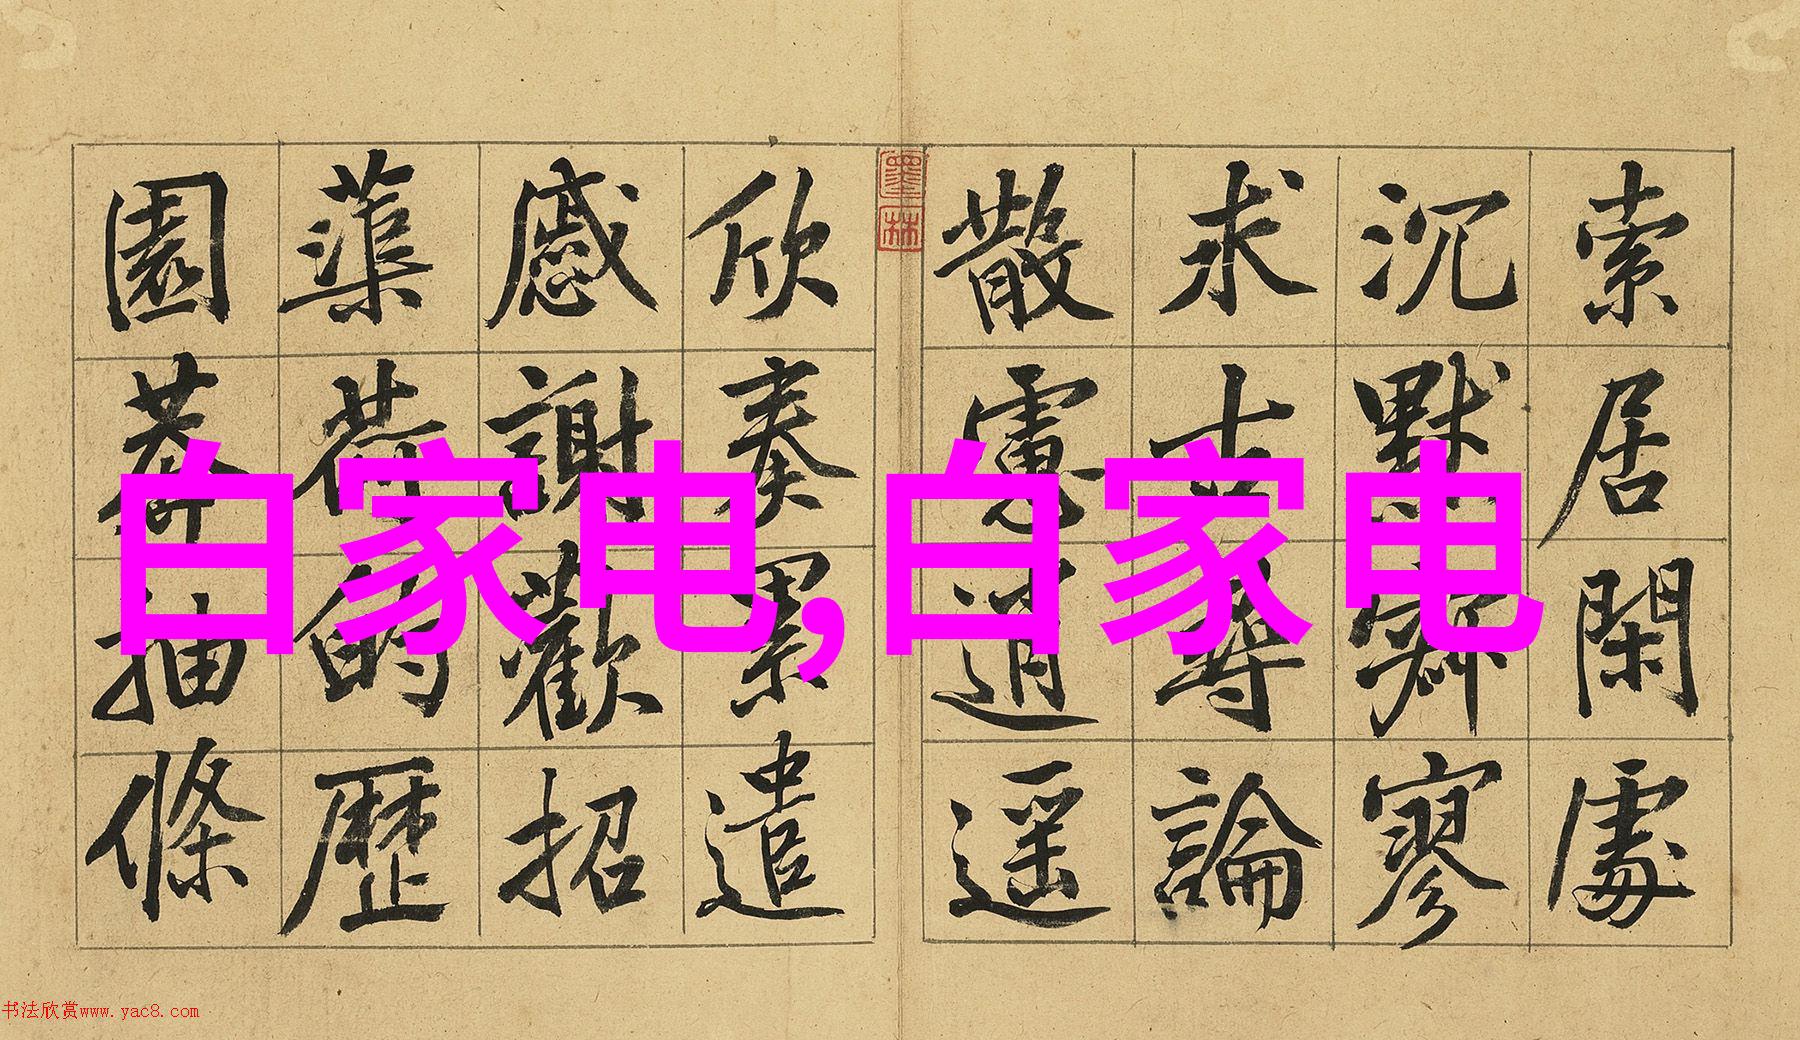 索居閑處
沉默寂寥
求古尋論
散慮逍遥
墨林
欣奏累遣
慼謝歡招
蕖荷的歷
園莽抽條
白家电,白家电
书法欣赏www.yac8.com